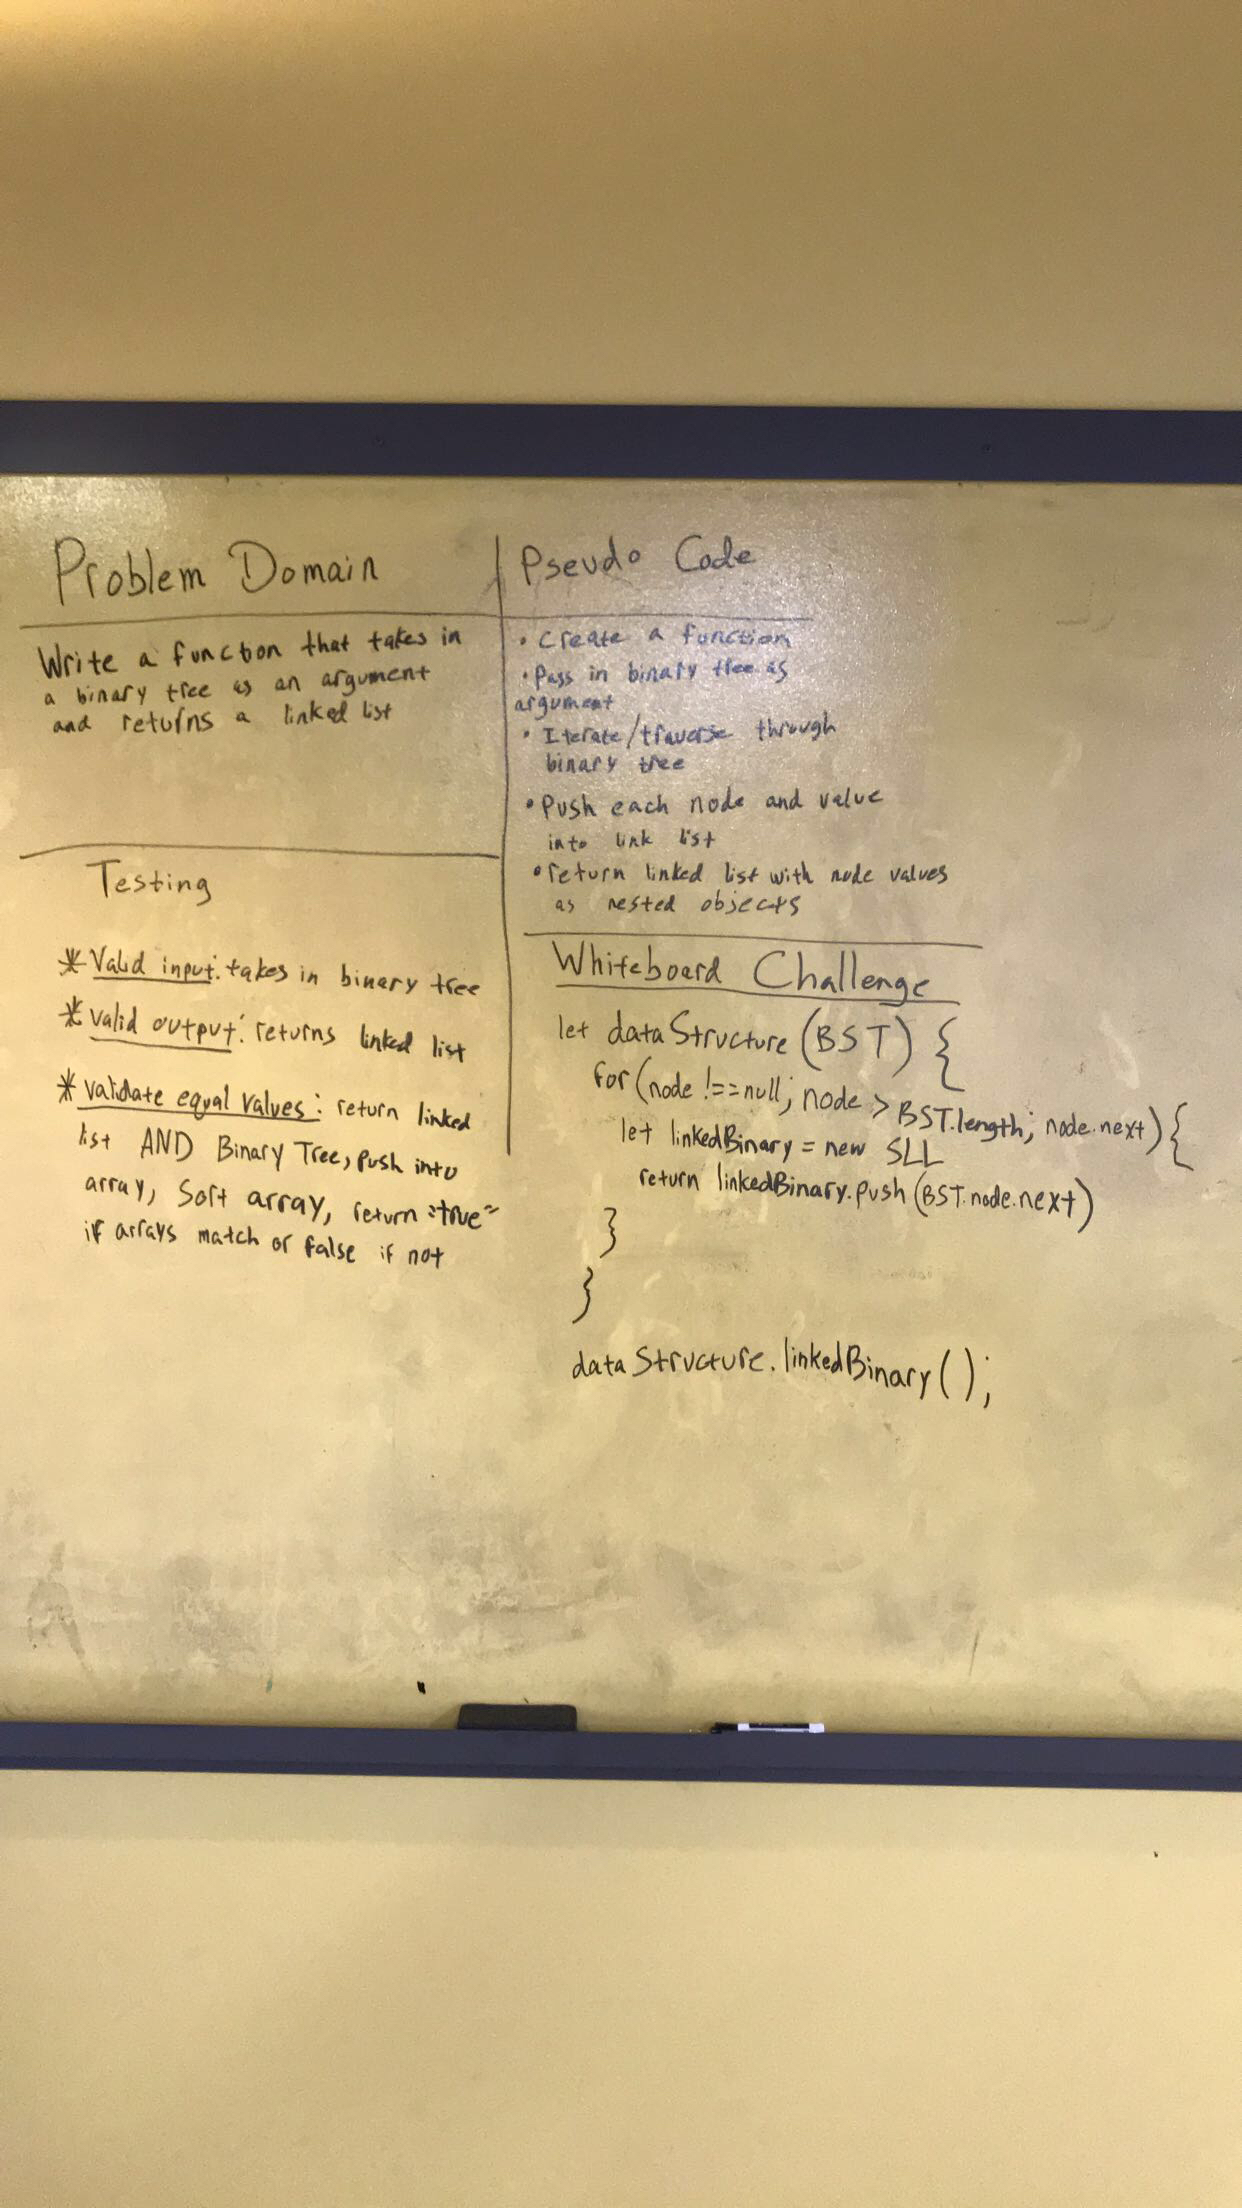 Problem Domain
Write a function that takes in
a binary tree as an argument
and returns a linked list
Testing
* Valid input: takes in binary tree
* Valid output: returns linked list
* Validate equal values: return linked
list AND Binary Tree, push into
array, Sort array, return "true"
if arrays match or false if not
Pseudo Code
• Create a function
• Pass in binary tree as
argument
• Iterate/traverse through
binary tree
• Push each node and value
into link list
• return linked list with node values
as nested objects
Whiteboard Challenge
let dataStructure (BST) {
for (node !== null; node > BST.length; node.next) {
let linkedBinary = new SLL
return linkedBinary.push (BST.node.next)
}
}
dataStructure.linkedBinary();